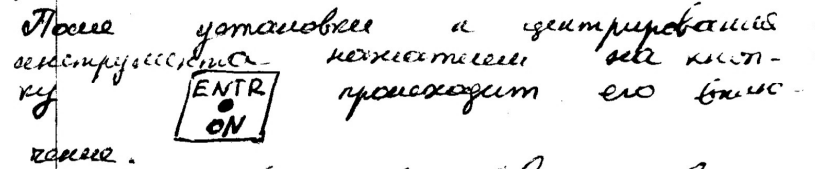 После установки и центрирования
инструмента нажатием на кноп-
ку ENTR ON происходит его вклю-
чение.